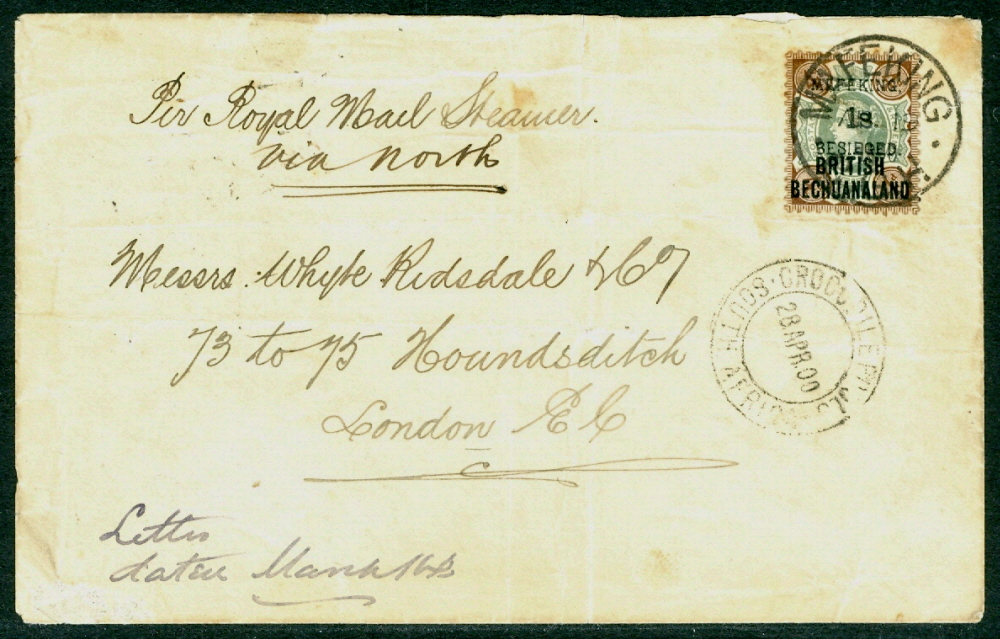 Per Royal Mail Steamer.
via north
MAFEKING,
1s.
BESIEGED.
BRITISH
BECHUANALAND
MAFEKING
Messrs. Whyte Ridsdale & Co
73 to 75 Houndsditch
London E C
CROCODILE POOLS · SOUTH AFRICA
28 APR 00
Letter
dated March 16th